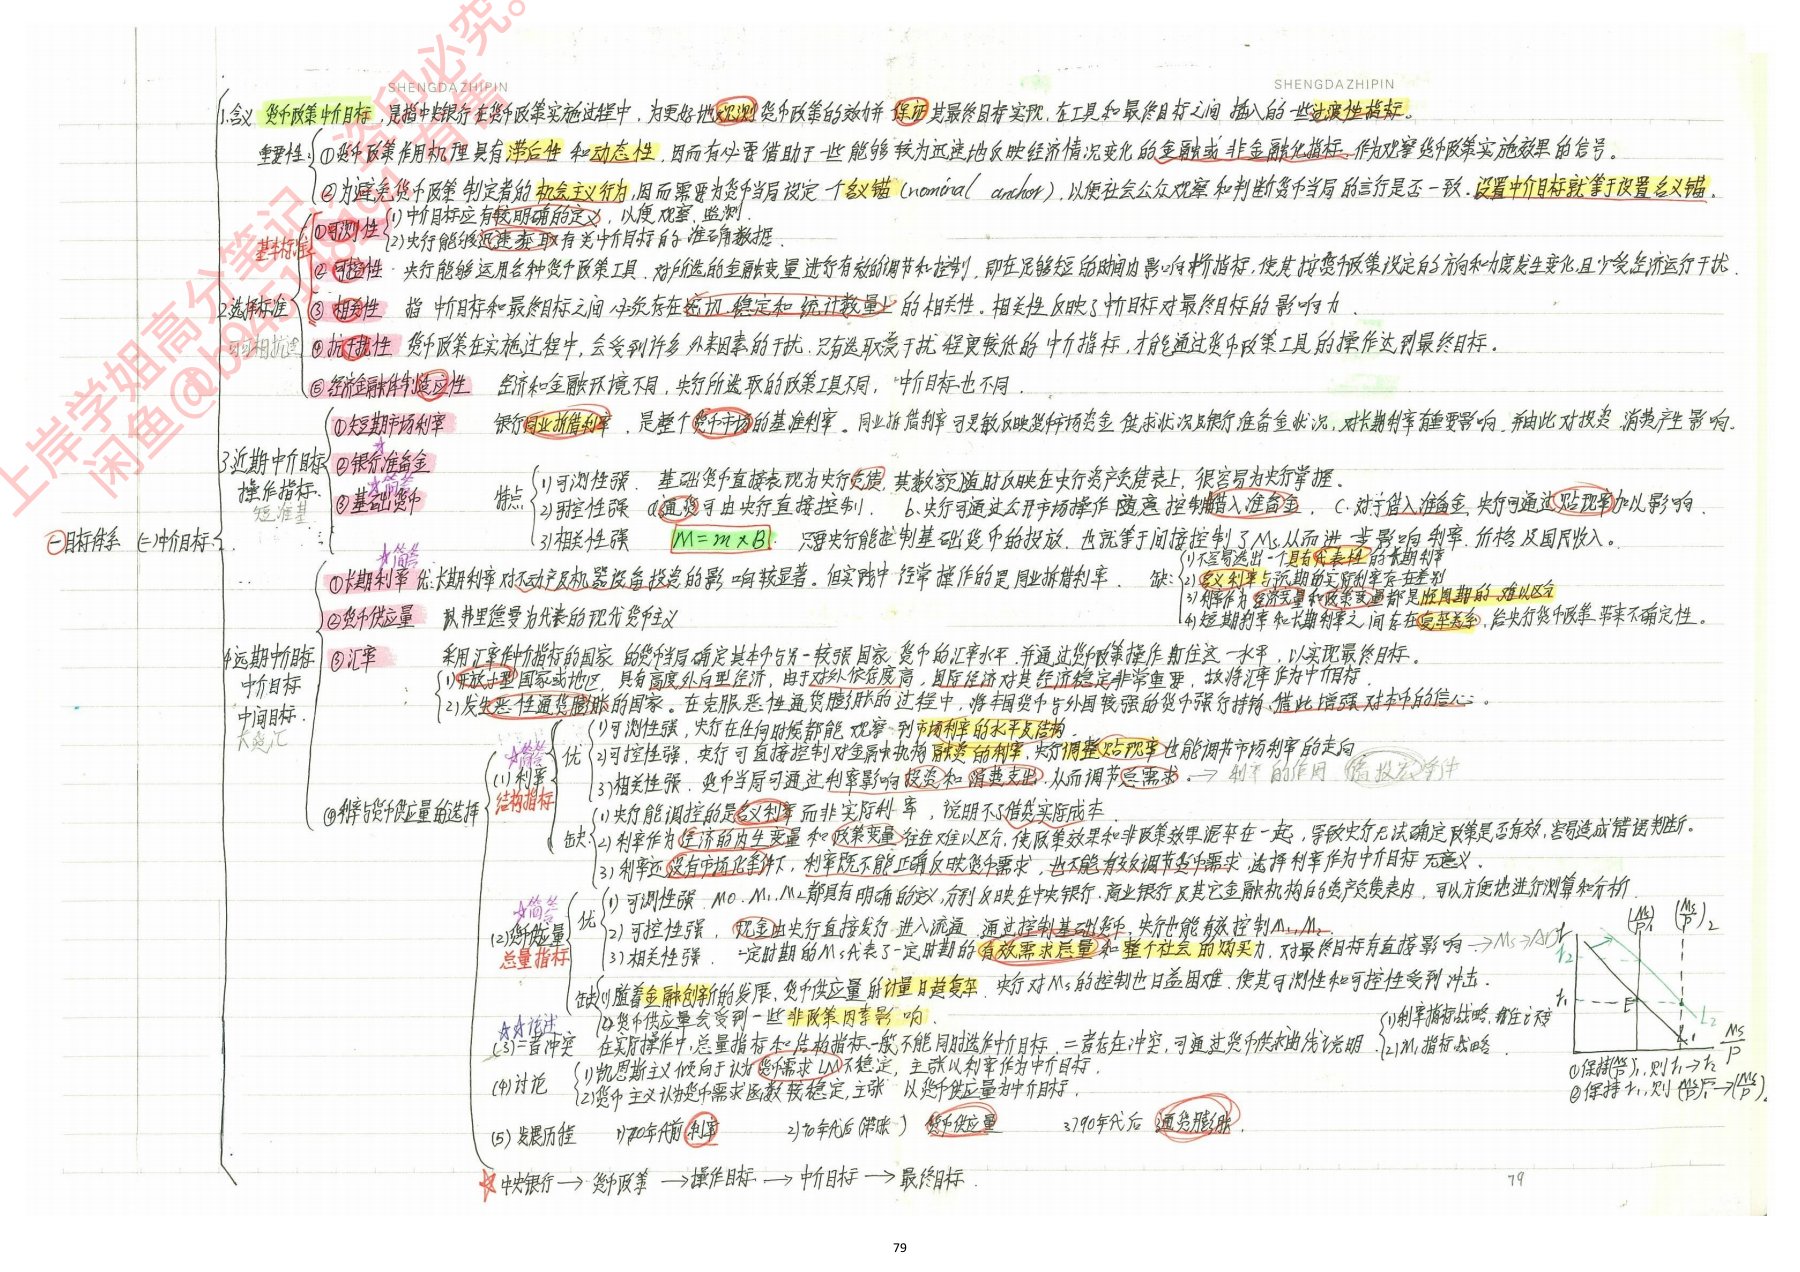 SHENGDAZHIPIN
SHENGDAZHIPIN
上岸学姐高分笔记，盗印必究。
㊀目标体系 ㈡中介目标
1.含义 货币政策中介目标，是指中央银行在货币政策实施过程中，为更好地观测货币政策的效力并保证其最终目标实现，在工具和最终目标之间插入的一些过渡性指标。
重要性：①货币政策作用机理具有滞后性和动态性，因而有必要借助于一些能够较为迅速地反映经济情况变化的金融或非金融化指标，作为观察货币政策实施效果的信号。
②为避免货币政策制定者的机会主义行为，因而需要为货币当局设定一个名义锚（nominal anchor），以便社会公众观察和判断货币当局的言行是否一致。设置中介目标就等于设置名义锚。
2.选择标准
基本标准
①可测性 (1)中介目标应有较明确的定义，以便观察、监测.
(2)央行能够迅速获取有关中介目标的准确数据.
②可控性 央行能够运用各种货币政策工具，对所选的金融变量进行有效的调节和控制，即在足够短的时间内影响中介指标，使其按货币政策设定的方向和力度发生变化，且少受经济运行干扰.
③相关性 指中介目标和最终目标之间必须存在密切、稳定和统计数量上的相关性。相关性反映了中介目标对最终目标的影响力.
可可相抗适
④抗干扰性 货币政策在实施过程中，会受到许多外来因素的干扰，只有选取受干扰程度较低的中介指标，才能通过货币政策工具的操作达到最终目标。
⑤经济金融体制适应性 经济和金融环境不同，央行所选取的政策工具不同，中介目标也不同.
3.近期中介目标
操作指标.
短准基
①短期市场利率 银行同业拆借利率，是整个货币市场的基准利率。同业拆借利率可灵敏反映货币市场资金供求状况及银行准备金状况，对长期利率有重要影响，并由此对投资、消费产生影响.
②银行准备金
☆简答
③基础货币 特点
1)可测性强. 基础货币直接表现为央行负债，其数额随时反映在央行资产负债表上，很容易为央行掌握.
2)可控性强 a.通货可由央行直接控制. b.央行可通过公开市场操作随意控制非借入准备金. c.对于借入准备金，央行可通过贴现率加以影响.
3)相关性强 M=m×B. 只要央行能控制基础货币的投放，也就等于间接控制了Ms，从而进一步影响利率、价格及国民收入。
4.远期中介目标
中介目标
中间目标.
大货汇
☆简答
①长期利率 优：长期利率对不动产及机器设备投资的影响较显著。但实践中经常操作的是同业拆借利率. 缺：
1)不容易选出一个具有代表性的长期利率
2)名义利率与预期的实际利率存在差别
3)利率作为经济变量和政策变量都是顺周期的，难以区分
4)短期利率和长期利率之间存在复杂关系，给央行货币政策带来不确定性。
②货币供应量 以弗里德曼为代表的现代货币主义
③汇率 采用汇率作中介指标的国家的货币当局确定其本币与另一较强国家货币的汇率水平，并通过货币政策操作盯住这一水平，以实现最终目标。
1)开放小型国家或地区，具有高度外向型经济，由于对外依存度高，国际经济对其经济稳定非常重要，故将汇率作为中介目标.
2)发生恶性通货膨胀的国家。在克服恶性通货膨胀的过程中，将本国货币与外国较强的货币强行挂钩，借此增强对本币的信心.
④利率与货币供应量的选择
☆简答
(1)利率
结构指标
优
1)可测性强，央行在任何时候都能观察到市场利率的水平及结构
2)可控性强，央行可直接控制对金融机构融资的利率，央行调整贴现率也能调节市场利率的走向
3)相关性强. 货币当局可通过利率影响投资和消费支出，从而调节总需求. → 利率的作用
缺：
1)央行能调控的是名义利率而非实际利率，说明不了借贷实际成本
2)利率作为经济的内生变量和政策变量往往难以区分，使政策效果和非政策效果混杂在一起，导致央行无法确定政策是否有效，容易造成错误判断。
3)利率还没有市场化条件下，利率既不能正确反映货币需求，也不能有效调节货币需求，选择利率作为中介目标无意义.
☆简答
(2)货币供应量
总量指标
优
1)可测性强. M0、M1、M2都具有明确的定义，分别反映在中央银行、商业银行及其它金融机构的资产负债表内，可以方便地进行测算和分析.
2)可控性强，现金由央行直接发行，进入流通，通过控制基础货币，央行也能有效控制M1、M2
3)相关性强. 一定时期的Ms代表了一定时期的有效需求总量和整个社会的购买力，对最终目标有直接影响 → Ms→AD↑
缺
1)随着金融创新的发展，货币供应量的计量日趋复杂，央行对Ms的控制也日益困难，使其可测性和可控性受到冲击.
2)货币供应量会受到一些非政策因素影响.
☆☆论述
(3)二者冲突 在实际操作中，总量指标和结构指标一般不能同时选作中介目标，二者存在冲突，可通过货币供求曲线说明.
1)利率指标战略，钉住i不变
2)Ms指标战略.
(Ms/P)1 (Ms/P)2
r
r2
r1
E
L2
L1
Ms/P
①保持(Ms/P)1，则r1→r2
②保持r1，则(Ms/P)1→(Ms/P)2
(4)讨论
1)凯恩斯主义倾向于认为货币需求LM不稳定，主张以利率作为中介目标.
2)货币主义认为货币需求函数较稳定，主张以货币供应量为中介目标.
(5)发展历程 1)70年代前 利率 2)70年代后(滞胀) 货币供应量 3)90年代后 通货膨胀.
☆中央银行→货币政策→操作目标→中介目标→最终目标.
79
79